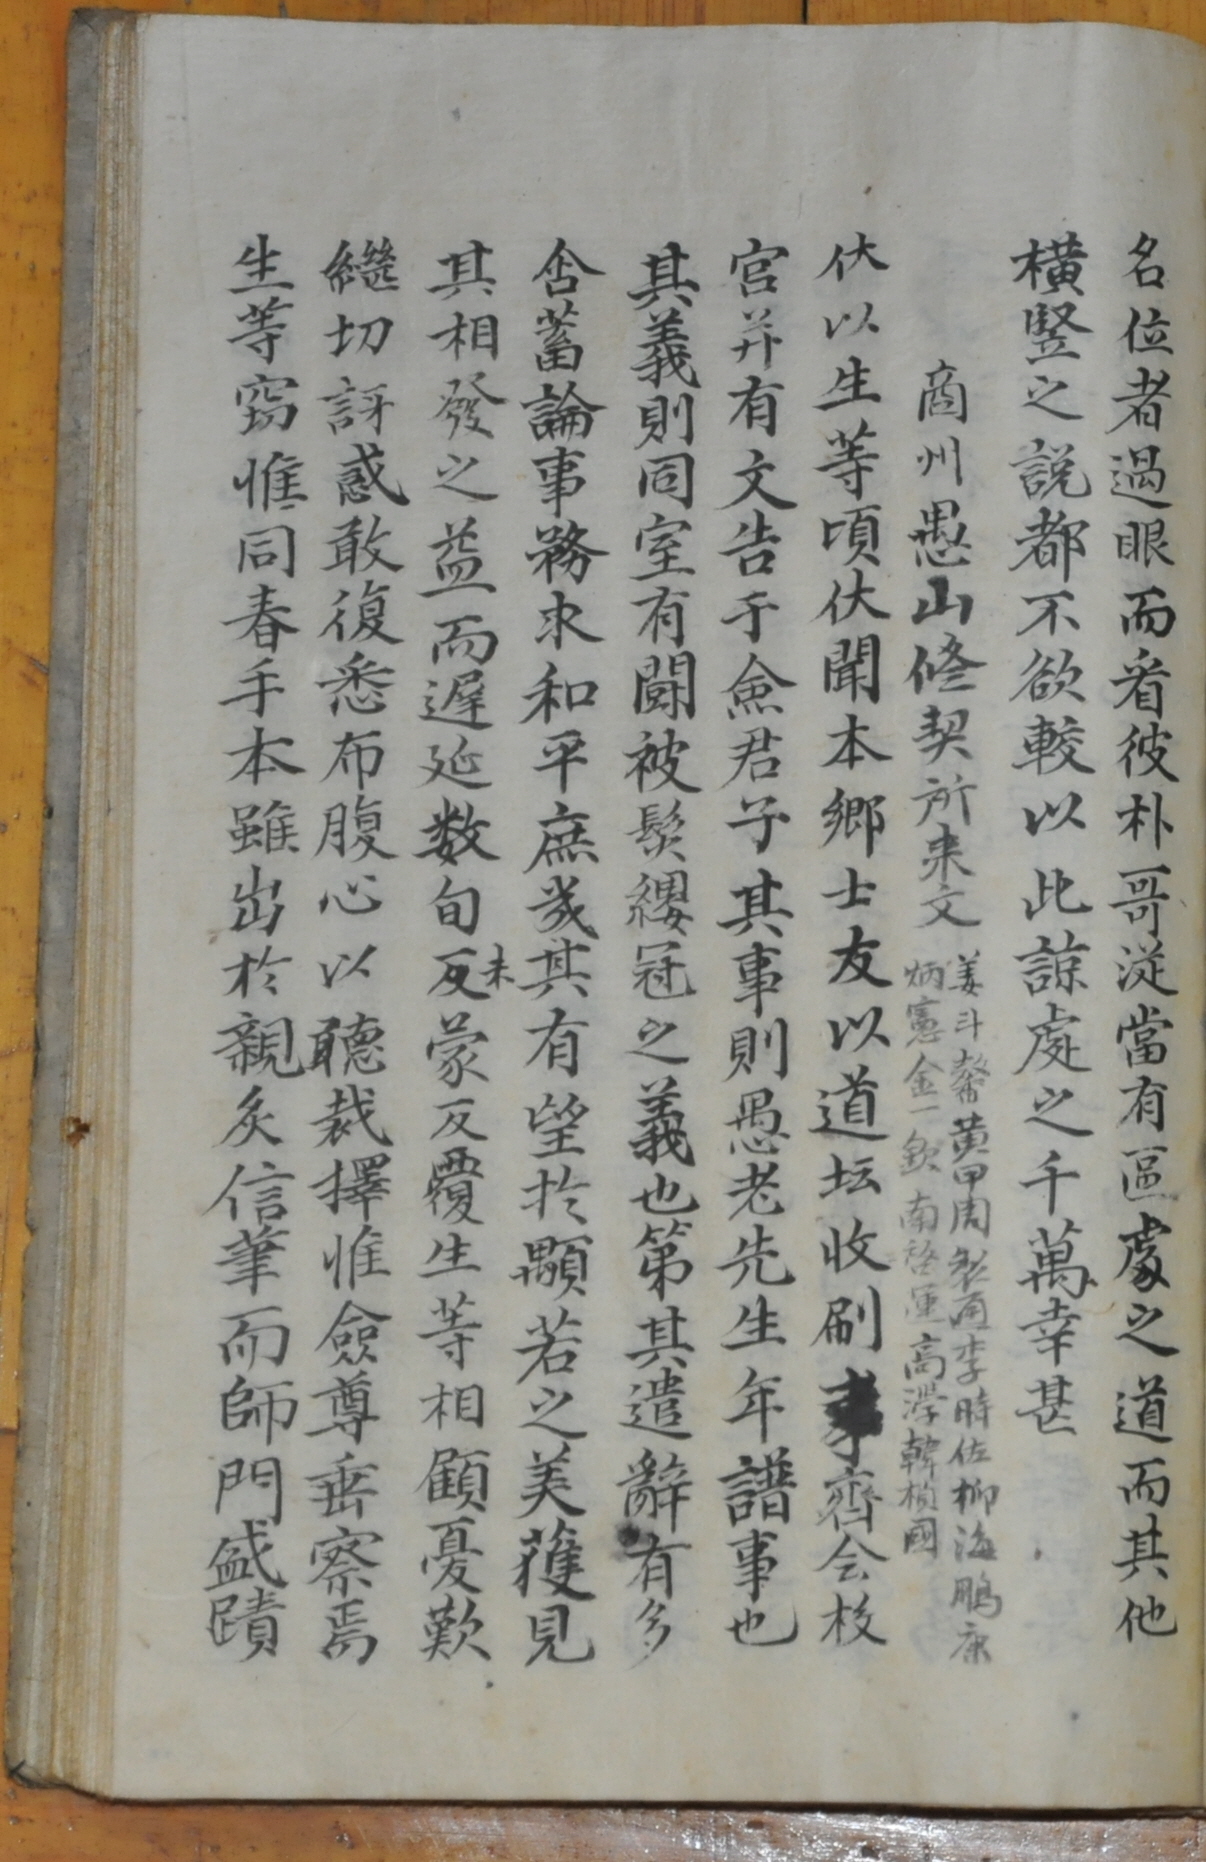 名位者過眼而看彼朴哥従當有區處之道而其他
橫竪之說都不欲較以此諒處之千萬幸甚
商州愚山修契所来文
姜斗黄甲周李時佐柳海鵬康
炳憲金一欽南啓運高學韓楨國
伏以生等頃伏聞本鄉士友以道坛收刷事齊会校
宮幷有文告于僉君子其事則愚老先生年譜事也
其義則同室有鬪被髮纓冠之義也第其遣辭有多
含蓄論事務求和平庶幾其有望於顒若之美獲見
其相發之益而遲延数旬未蒙反覆生等相顧憂歎
繼切訝惑敢復悉布腹心以聽裁擇惟僉尊垂察焉
生等竊惟同春手本雖出於親炙信筆而師門盛蹟